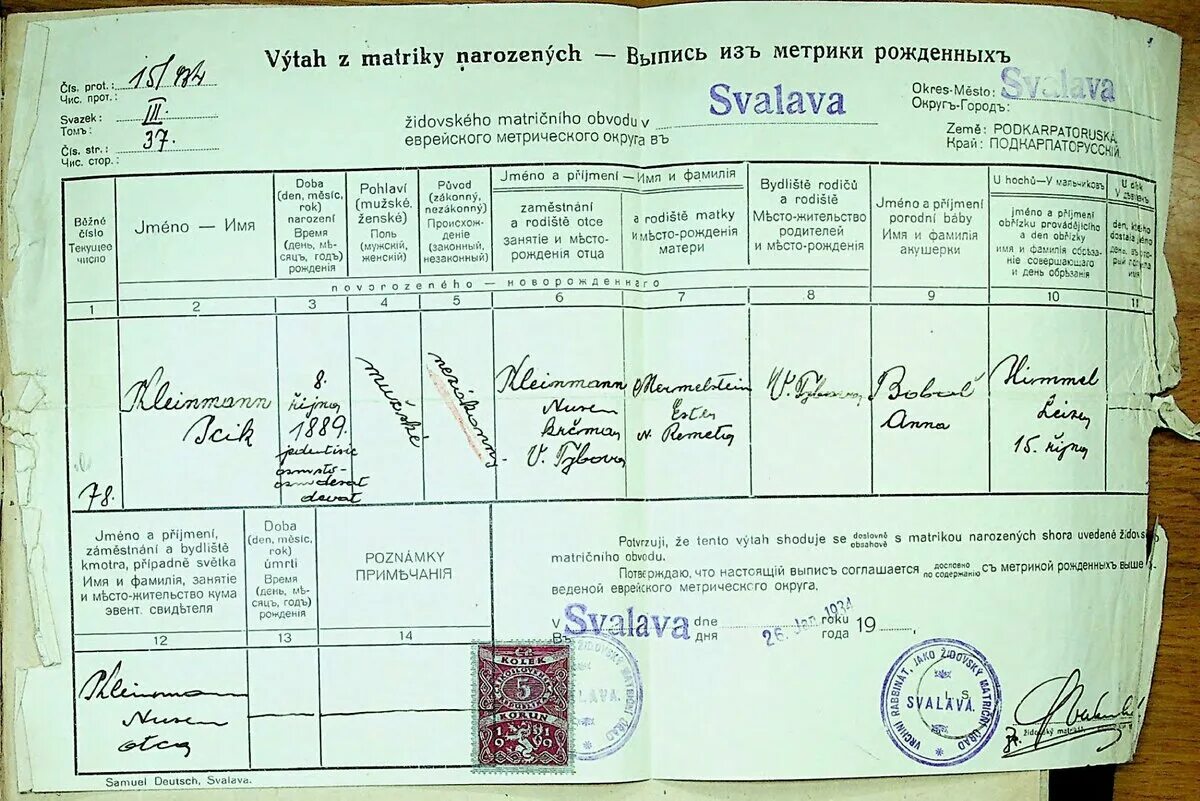 Výtah z matriky narozených — Выпись изъ метрики рожденныхъ
Čís. prot.: 15/934
Чис. прот.:
Svazek: III.
Томъ:
Čís. str.: 37.
Чис. стор.:
židovského matričního obvodu v Svalava
еврейского метрического округа въ
Okres-Město: Svalava
Округъ-Городъ:
Země: PODKARPATORUSKÁ
Край: ПОДКАРПАТОРУССКІЙ
Běžné
číslo
Текущее
число
Jméno — Имя
Doba
(den, měsíc,
rok)
narození
Время
(день, мѣ-
сяцъ, годъ)
рожденія
Pohlaví
(mužské,
ženské)
Полъ
(мужскій,
женскій)
Původ
(zákonný,
nezákonný)
Происхож-
деніе
(законный,
незаконный)
Jméno a příjmení — Имя и фамилія
zaměstnání
a rodiště otce
занятіе и мѣсто-
рожденія отца
a rodiště matky
и мѣсто-рожденія
матери
Bydliště rodičů
a rodiště
Мѣсто-жительство
родителей
и мѣсто-рожденія
Jméno a příjmení
porodní báby
Имя и фамилія
акушерки
U hochů—У мальчиковъ
jméno a příjmení
obřízku provádějícího
a den obřízky
имя и фамилія обрѣза-
ніе совершающаго
и день обрѣзанія
novorozeného — новорожденнаго
1 2 3 4 5 6 7 8 9 10 11
78.
Kleinmann
Icik
8.
října
1889.
osmsto-
osmdesát
devět
mužské
nezákonný
Kleinmann
Nusen
krčmář
V. Tybova
Mermelstein
Ester
N. Remety
V. Tybova
Anna
Himmel
Leizer
15. října
Jméno a příjmení,
zaměstnání a bydliště
kmotra, případně svědka
Имя и фамилія, занятіе
и мѣсто-жительство кума
эвент. свидѣтеля
Doba
(den, měsíc,
rok)
úmrtí
Время
(день, мѣ-
сяцъ, годъ)
рожденія
POZNÁMKY
ПРИМѢЧАНІЯ
12 13 14
Kleinmann
Nusen
otec
Potvrzuji, že tento výtah shoduje se doslovně obsahově s matrikou narozených shora uvedené židov
matričního obvodu.
Потверждаю, что настоящій выпис соглашается дословно по содержанию съ метрикой рожденныхъ выше
веденой еврейского метрического округа.
v Svalava dne 26. Jan. 1934 roku 19
Въ дня года
KOLEK
5
KORUN
1919
ŽIDOVSKÝ MATRIČNÝ ÚRAD
VRCHNÍ RABBINÁT, JAKO ŽIDOVSKÝ MATRIČNÝ ÚRAD
SVALAVA.
L S
židovský matrik
Samuel Deutsch, Svalava.